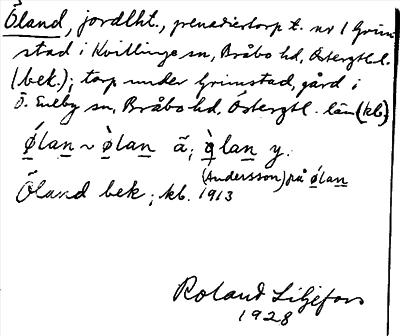 Öland, jordlht., grenadiertorp t. nr 1 Grim-
stad i Kvillinge sn, Bråbo hd, Östergtl. l.
(bek.); torp under Grimstad, gård i
Ö. Eneby sn, Bråbo hd, Östergtl. län (kb)
ǿlan ~ ø̀lan ä; ø̀lan y.
(Andersson) på ǿlan
Öland bek; kb. 1913
Roland Liljefors
1928